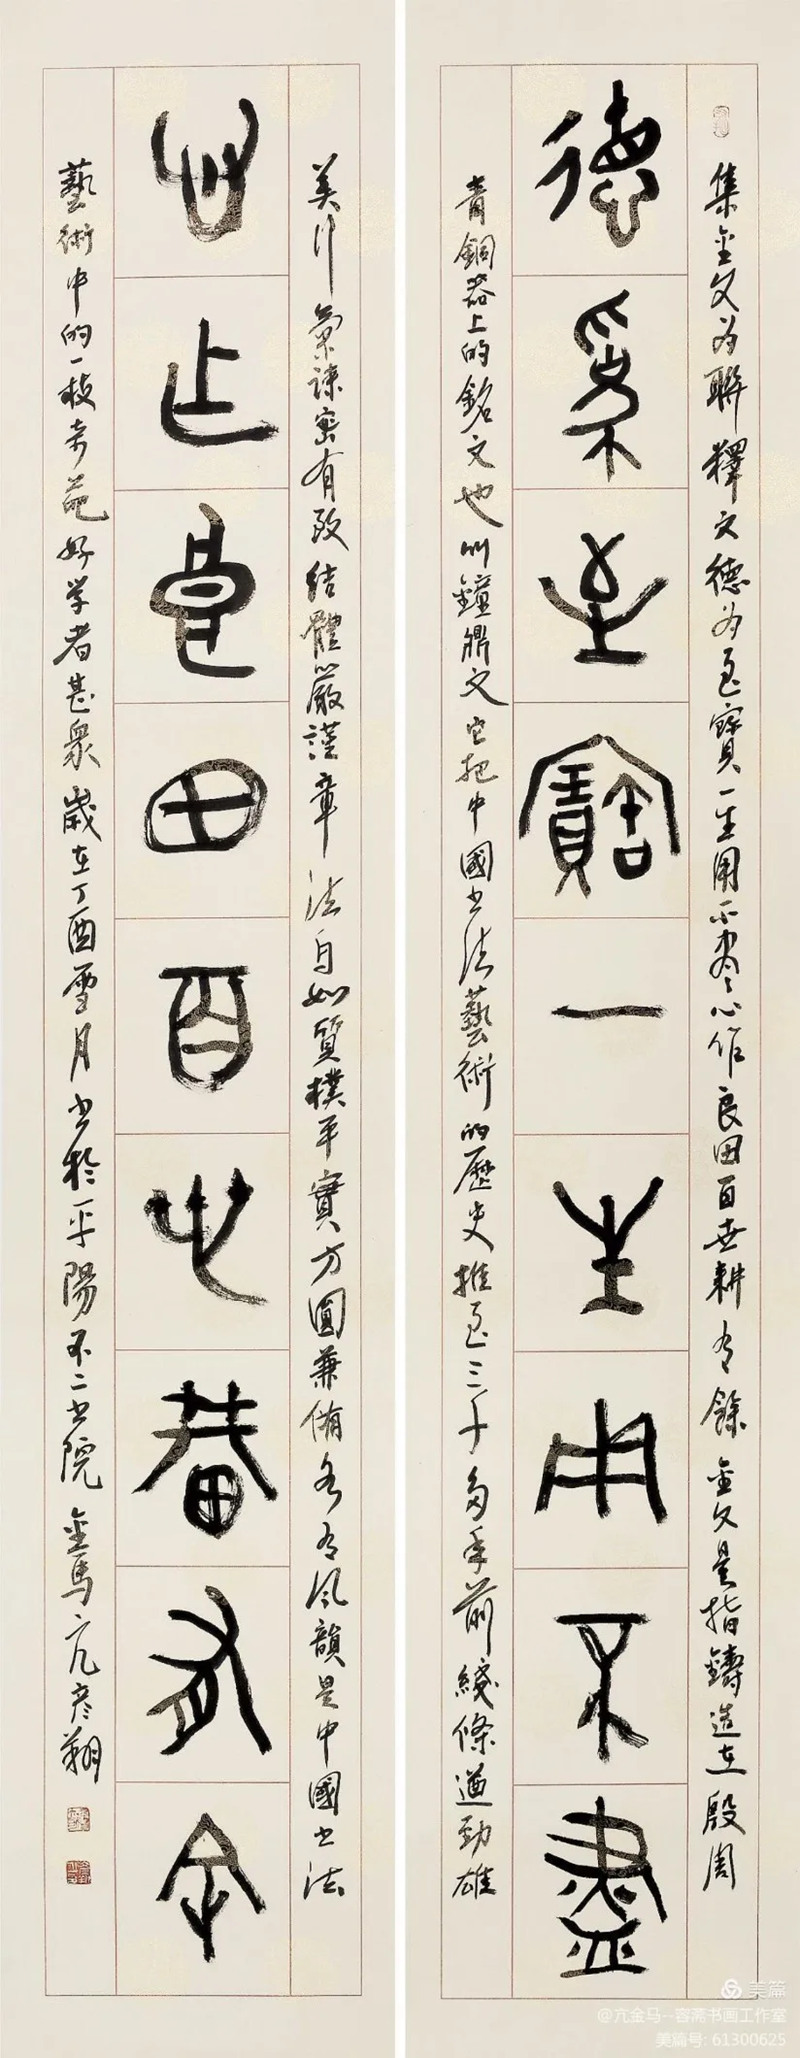 德為至寶一生用不盡
集金文為聯釋文德為至寶一生用不盡心作良田百世耕有餘金文是指鑄造在殷周
青銅器上的銘文也叫鐘鼎文它把中國書法藝術的歷史推至三千多年前綫條遒勁雄
心作良田百世耕有余
美行氣疎密有致結體嚴謹章法自如質樸平實方圓兼備各有風韻是中國書法
藝術中的一枝奇葩好學者甚衆歲在丁酉雪月書於平陽不二書院金馬亢彦翔
美篇
@亢金马--容斋书画工作室
美篇号: 61300625